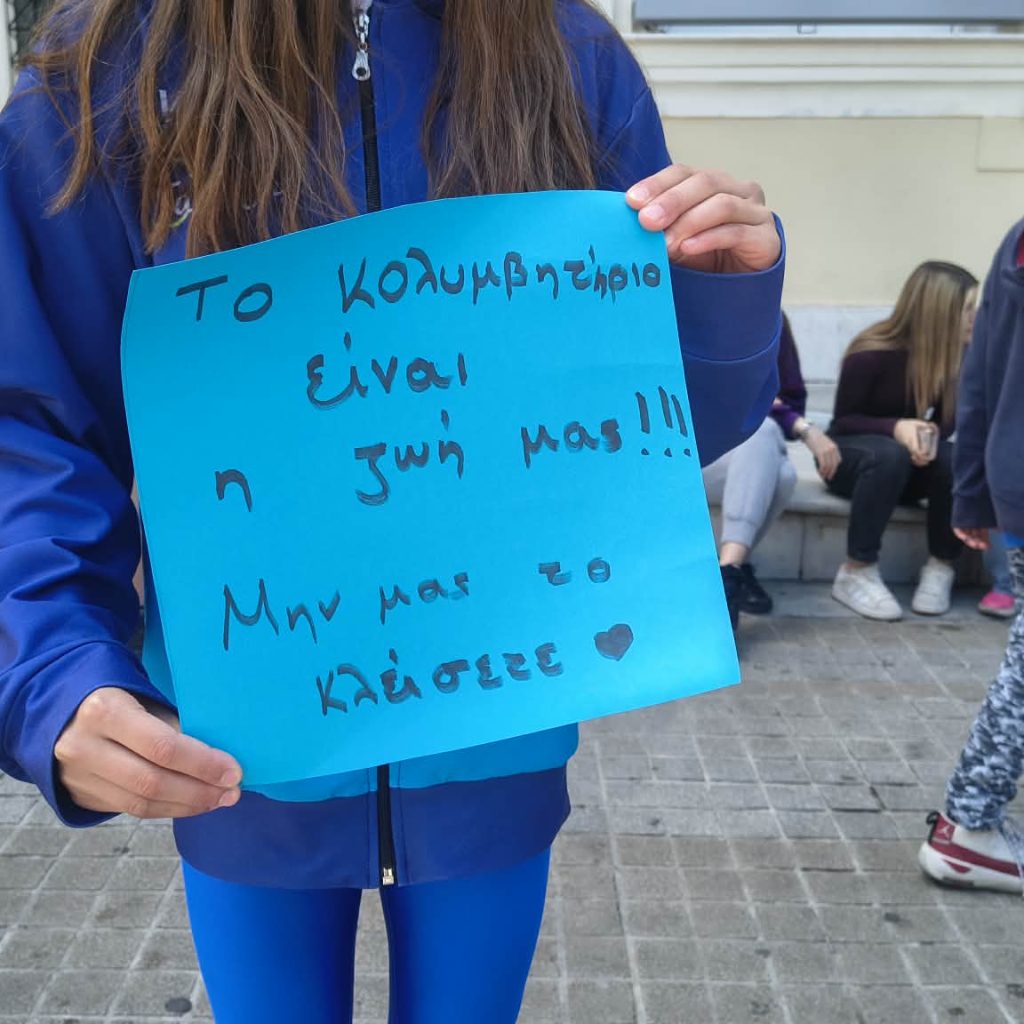 Το Κολυμβητήριο
είναι
η ζωή μας!!!
Μην μας το
κλείσετε ♥